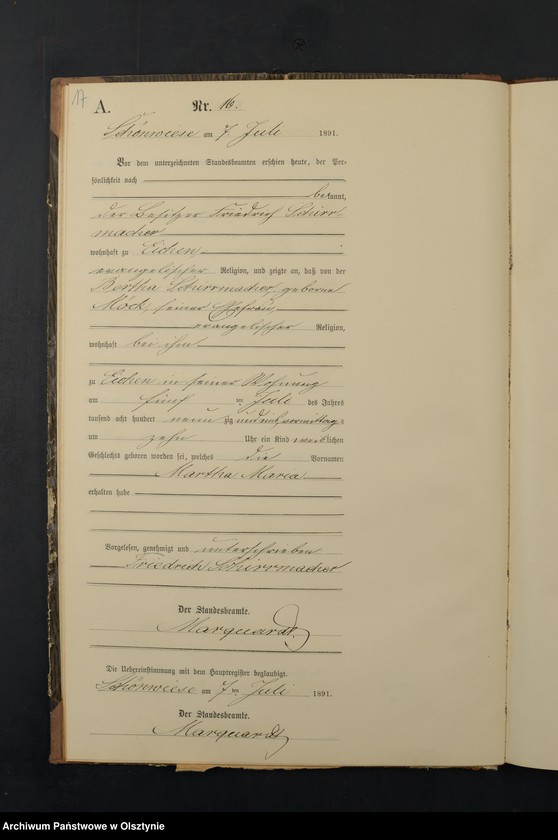 17
A.
Nr. 16.
Schönwiese am 7 Juli 1891.
Vor dem unterzeichneten Standesbeamten erschien heute, der Per-
sönlichkeit nach
bekannt,
der Besitzer Friedrich Schirr-
macher
wohnhaft zu Eichen
evangelischer Religion, und zeigte an, daß von der
Bertha Schirrmacher, geborne
Röck, seiner Ehefrau,
evangelischer Religion,
wohnhaft bei ihm
zu Eichen in seiner Wohnung
am fünften Juli des Jahres
tausend acht hundert neunzig und eins vormittags
um zehn Uhr ein Kind weiblichen
Geschlechts geboren worden sei, welches die Vornamen
Martha Maria
erhalten habe
Vorgelesen, genehmigt und unterschrieben
Friedrich Schirrmacher
Der Standesbeamte.
Marquardt.
Die Uebereinstimmung mit dem Hauptregister beglaubigt.
Schönwiese am 7ten Juli 1891.
Der Standesbeamte.
Marquardt
Archiwum Państwowe w Olsztynie